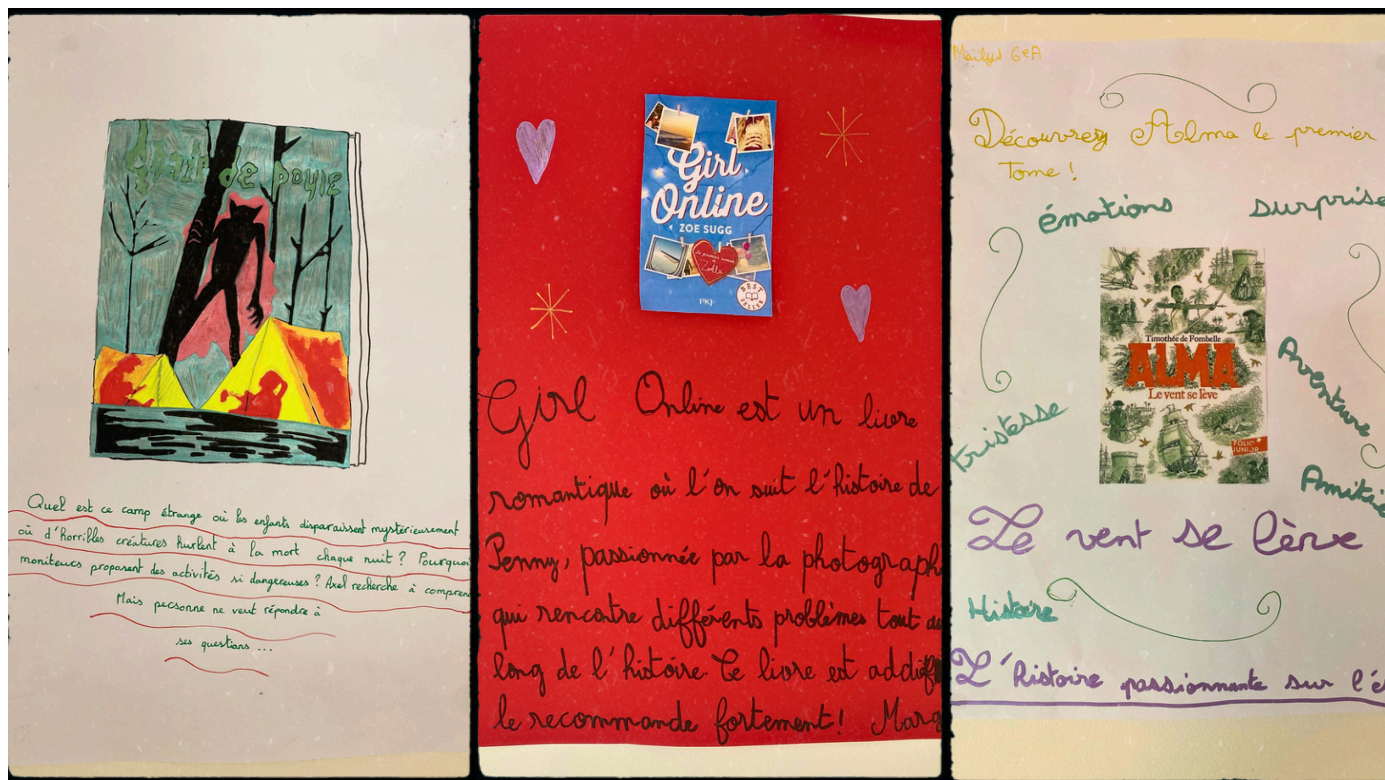 Chair de poule
Quel est ce camp étrange où les enfants disparaissent mystérieusement
où d'horribles créatures hurlent à la mort chaque nuit ? Pourquoi
moniteurs proposent des activités si dangereuses ? Axel recherche à compren
Mais personne ne veut répondre à
ses questions ...
Girl
Online
ZOE SUGG
Le premier roman de
Zoella
BEST
SELLER
PKJ
Girl Online est un livre
romantique où l'on suit l'histoire de
Penny, passionnée par la photograph
qui rencontre différents problèmes tout au
long de l'histoire. Ce livre est addictif
le recommande fortement ! Marg
Maïlys 6eA
Découvrez Alma le premier
Tome !
émotions surprise
Timothée de Fombelle
ALMA
Le vent se lève
FOLIO
JUNIOR
Aventure
Tristesse
Amitié
Le vent se lève
Histoire
L'histoire passionnante sur l'e